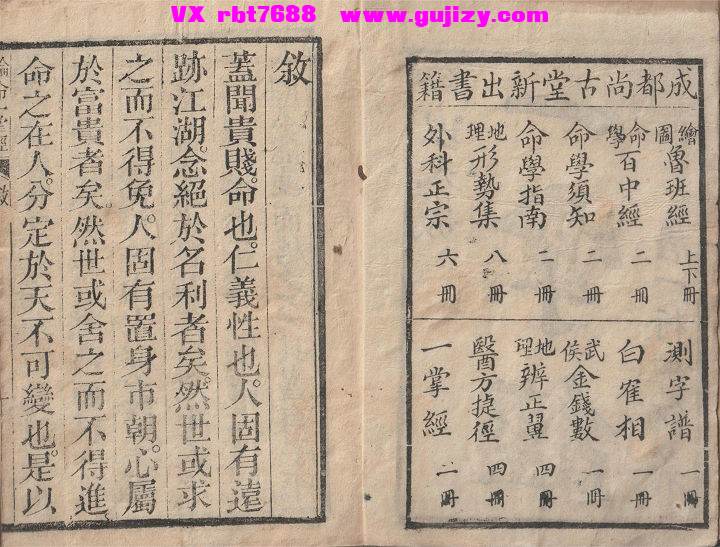 VX rbt7688 www.gujizy.com
成都尚古堂新出書籍
繪圖魯班經 上下冊
命學百中經 二冊
命學須知 二冊
命學指南 二冊
地理形勢集 八冊
外科正宗 六冊
測字譜 一冊
白雀相 一冊
武侯金錢數 一冊
地理辨正翼 四冊
醫方捷徑 四冊
一掌經 二冊
敘
蓋聞貴賤命也仁義性也人固有遠
跡江湖念絕於名利者矣然世或求
之而不得免人固有置身市朝心屬
於富貴者矣然世或舍之而不得進
命之在人分定於天不可變也是以